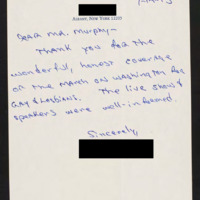 ALBANY, NEW YORK 12203
Dear Mr. Murphy—
Thank you for the
wonderful, honest coverage
of the March on Washington for
Gay & Lesbians. The live show &
speakers were well-informed.
Sincerely,